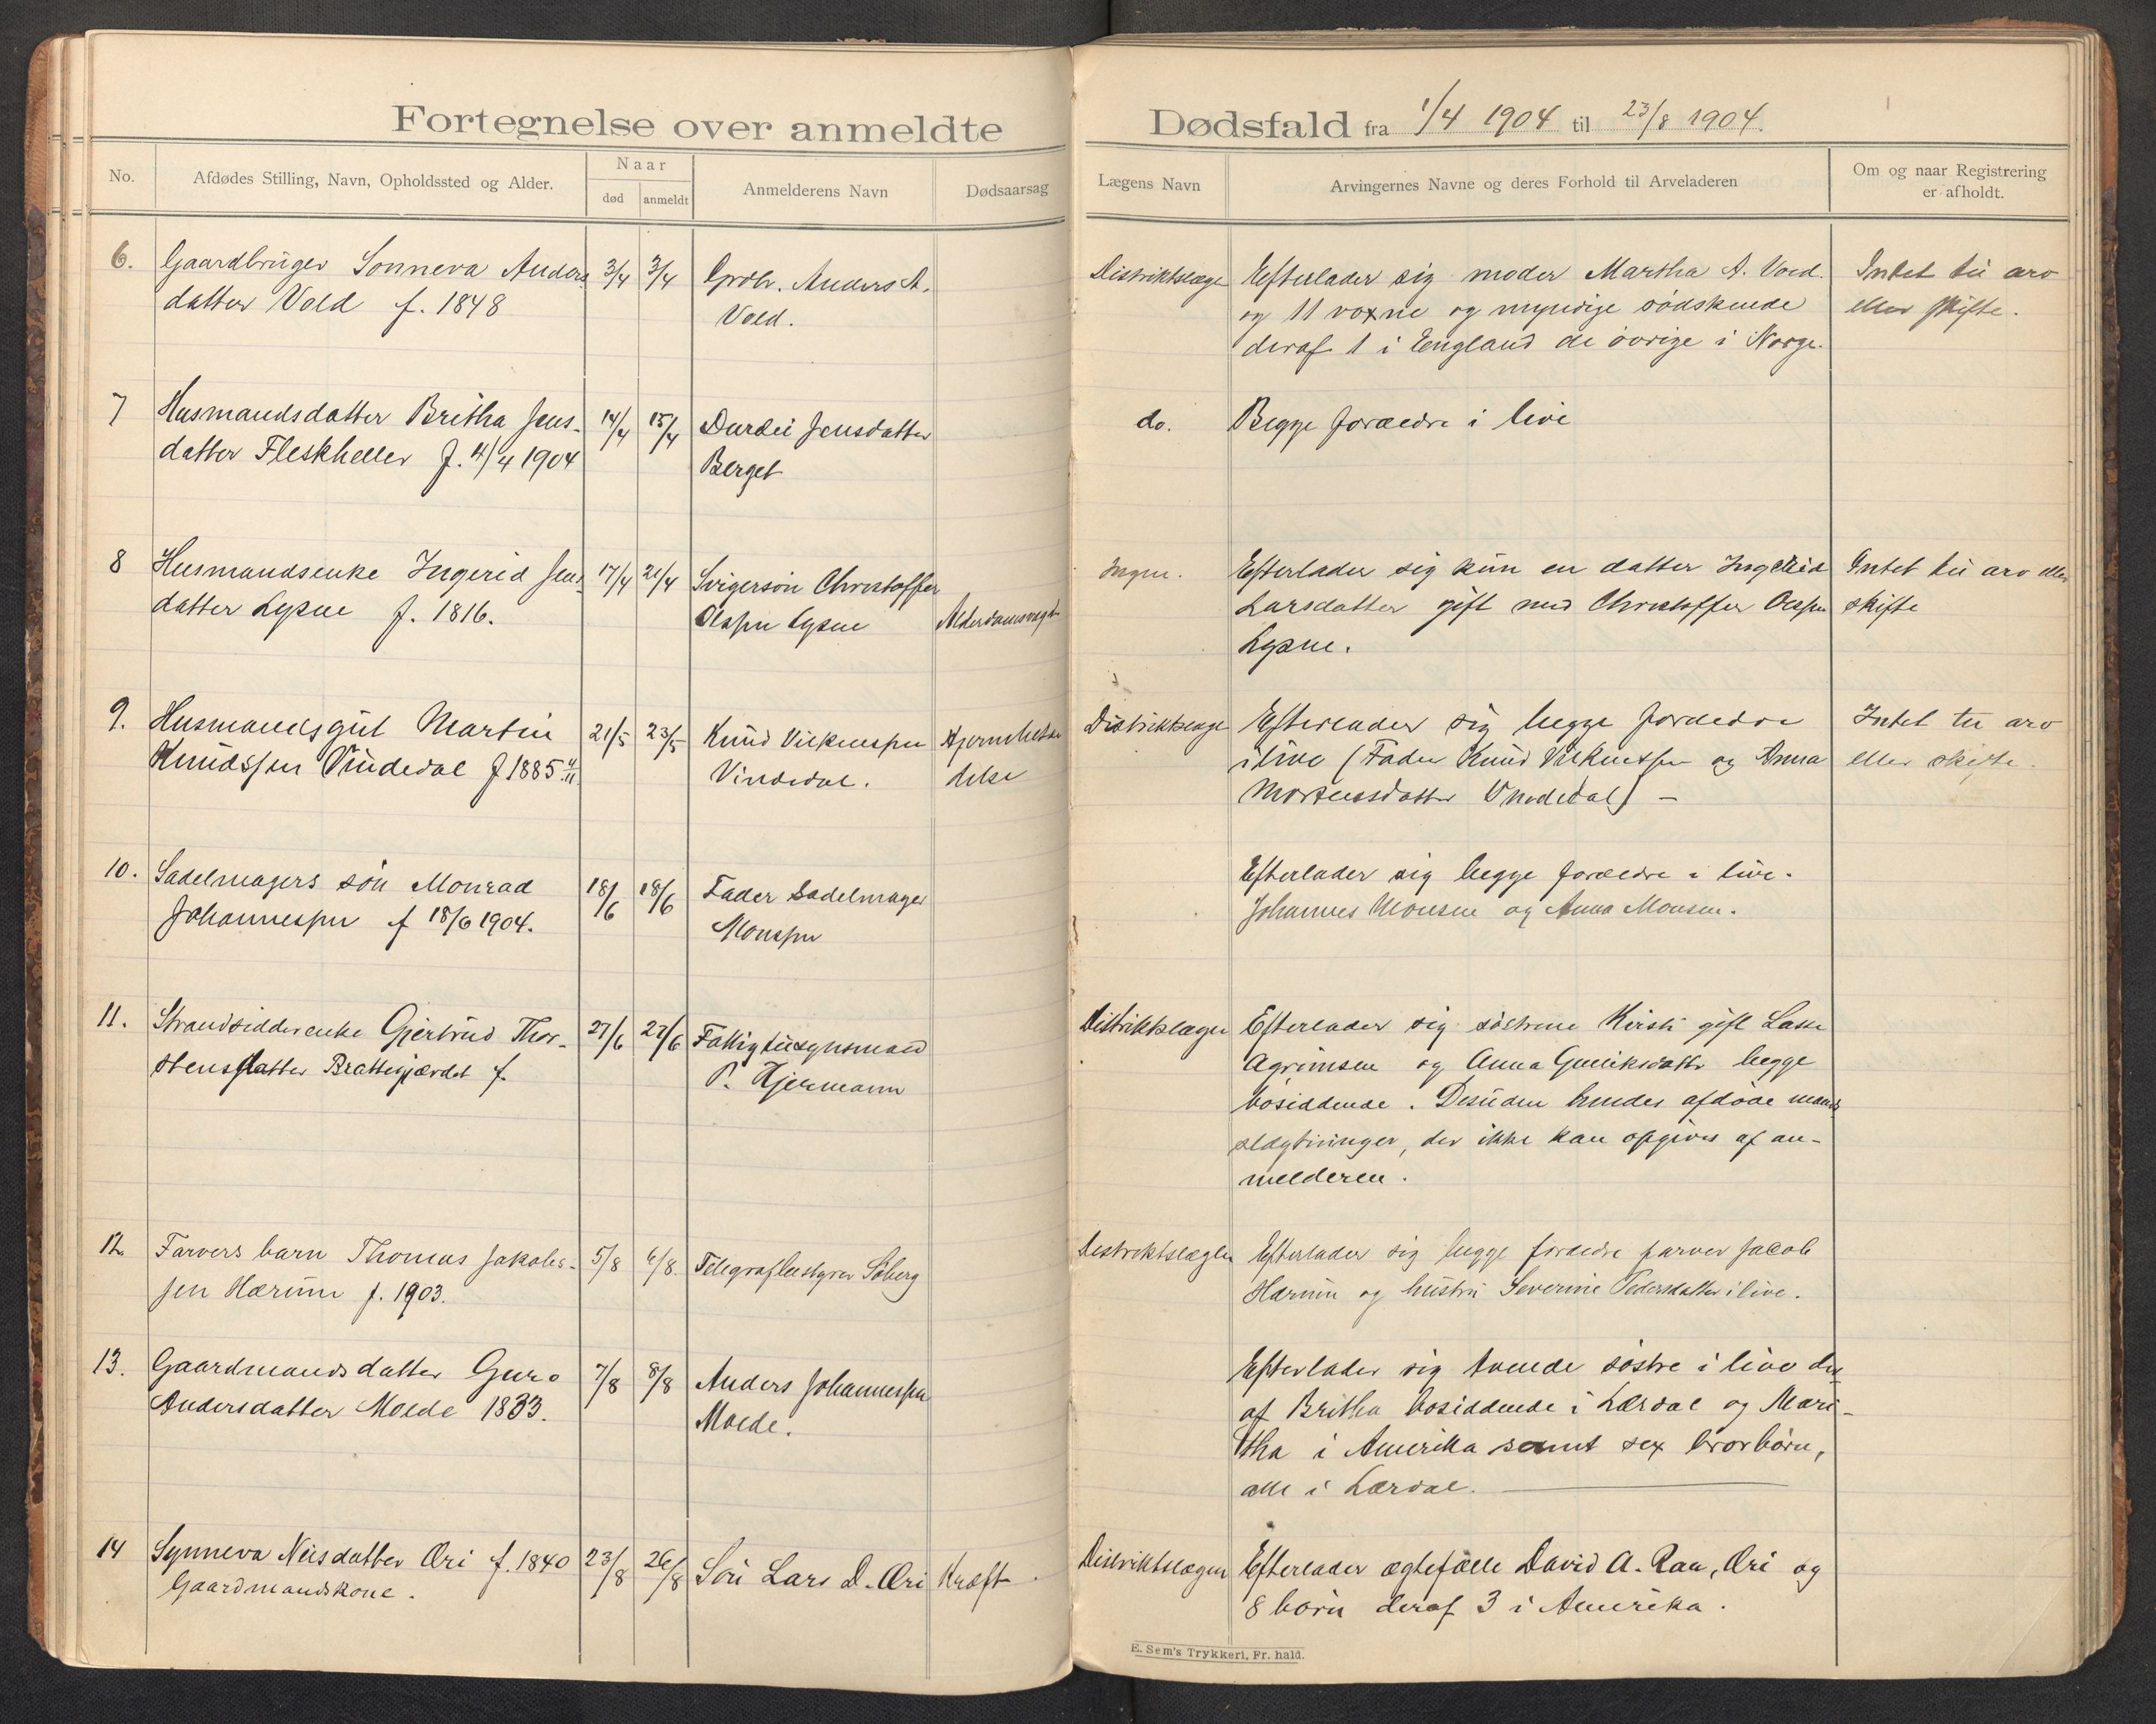 Fortegnelse over anmeldte
No.
Afdødes Stilling, Navn, Opholdssted og Alder.
Naar
død
anmeldt
Anmelderens Navn
Dødsaarsag
6. Gaardbruger Sonneva Anders 3/4 3/4 Grdbr. Anders A.
datter Vold f. 1848 Vold.
7 Husmandsdatter Britha Jens- 14/4 15/4 Durdei Jensdatter
datter Fleskheller f. 4/4 1904 Berget
8 Husmandsenke Ingerid Jens 17/4 21/4 Svigersön Christoffer
datter Lysne f. 1816. Olsen Lysne Alderdomssvaghed
9. Husmandsgut Martin 21/5 23/5 Knud Vilkensen Hjernebetæn
Knudssen Vindedal f 1885 4/11. Vindedal. delse
10. Sadelmagers sön Monrad 18/6 18/6 Fader Sadelmager
Johannessen f 18/6 1904. Monsen
11. Strandsidderenke Gjertrud Thor- 27/6 27/6 Fattigtilsynsmand
stensdatter Brattegjærdet f. P. Hjermann
12. Farvers barn Thomas Jakobs- 5/8 6/8. Telegrafbestyrer Söberg
sen Hærum f. 1903.
13. Gaardmandsdatter Guro 7/8 8/8 Anders Johannessen
Andersdatter Molde 1833. Molde.
14 Synneva Nilsdatter Øri f. 1840 23/8 26/8 Sön Lars D. Øri Kræft.
Gaardmandskone.
Dødsfald fra 1/4 1904 til 23/8 1904.
Lægens Navn
Arvingernes Navne og deres Forhold til Arveladeren
Om og naar Registrering
er afholdt.
Distriktslæge Efterlader sig moder Martha A. Vold. Intet til arv
og 11 voxne og myndige södskende eller skifte.
deraf 1 i England de övrige i Norge.
do. Begge forældre i live
Ingen. Efterlader sig kun en datter Ingerid Intet til arv eller
Larsdatter gift med Christoffer Olssen skifte
Lysne.
Distriktslæge Efterlader sig begge forældre Intet til arv
i live (Fader Knud Vilkensen og Anna eller skifte.
Mortensdatter Vindedal) -
Efterlader sig begge forældre i live.
Johannes Monsen og Anna Monsen.
Distriktslægen Efterlader sig söstrene Kirsti gift Lasse
Agrimsen og Anna begge
bosiddende. Desuden hendes afdöde mands
slægtninger, der ikke kan opgives af an-
melderen.
Distriktslægen Efterlader sig begge forældre farver Jacob
Hærum og hustru Severine Pedersdatter i live.
Efterlader sig tvende söstre i live der
af Britha bosiddende i Lærdal og Mari-
tha i Amerika samt sex brorbörn,
alle i Lærdal.
Distriktslægen Efterlader ægtefælle David A. Raa, Øri og
8 börn deraf 3 i Amerika.
E. Sem's Trykkeri, Fr. hald.